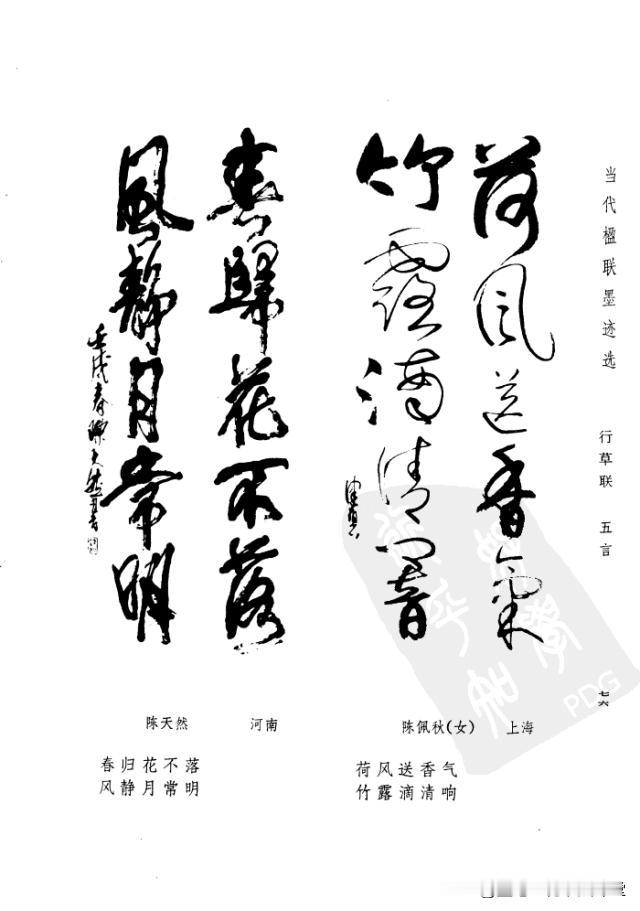 当代楹联墨迹选
行草联 五言
七六
荷风送香气
竹露滴清响
佩秋
陈佩秋(女) 上海
荷风送香气
竹露滴清响
春归花不落
风静月常明
壬戌春陈天然书
陈天然 河南
春归花不落
风静月常明
PDG